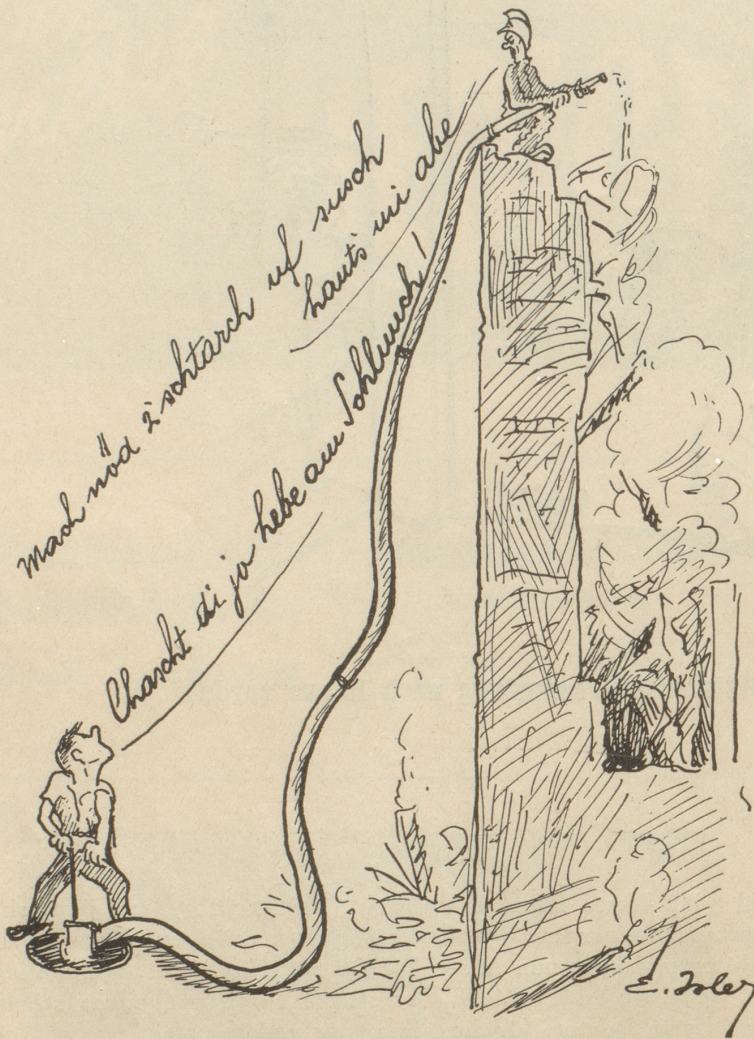 mach nöd z'schtarch uf susch
hauts mi abe
Chascht di jo hebe am Schluuch!
E. Isler